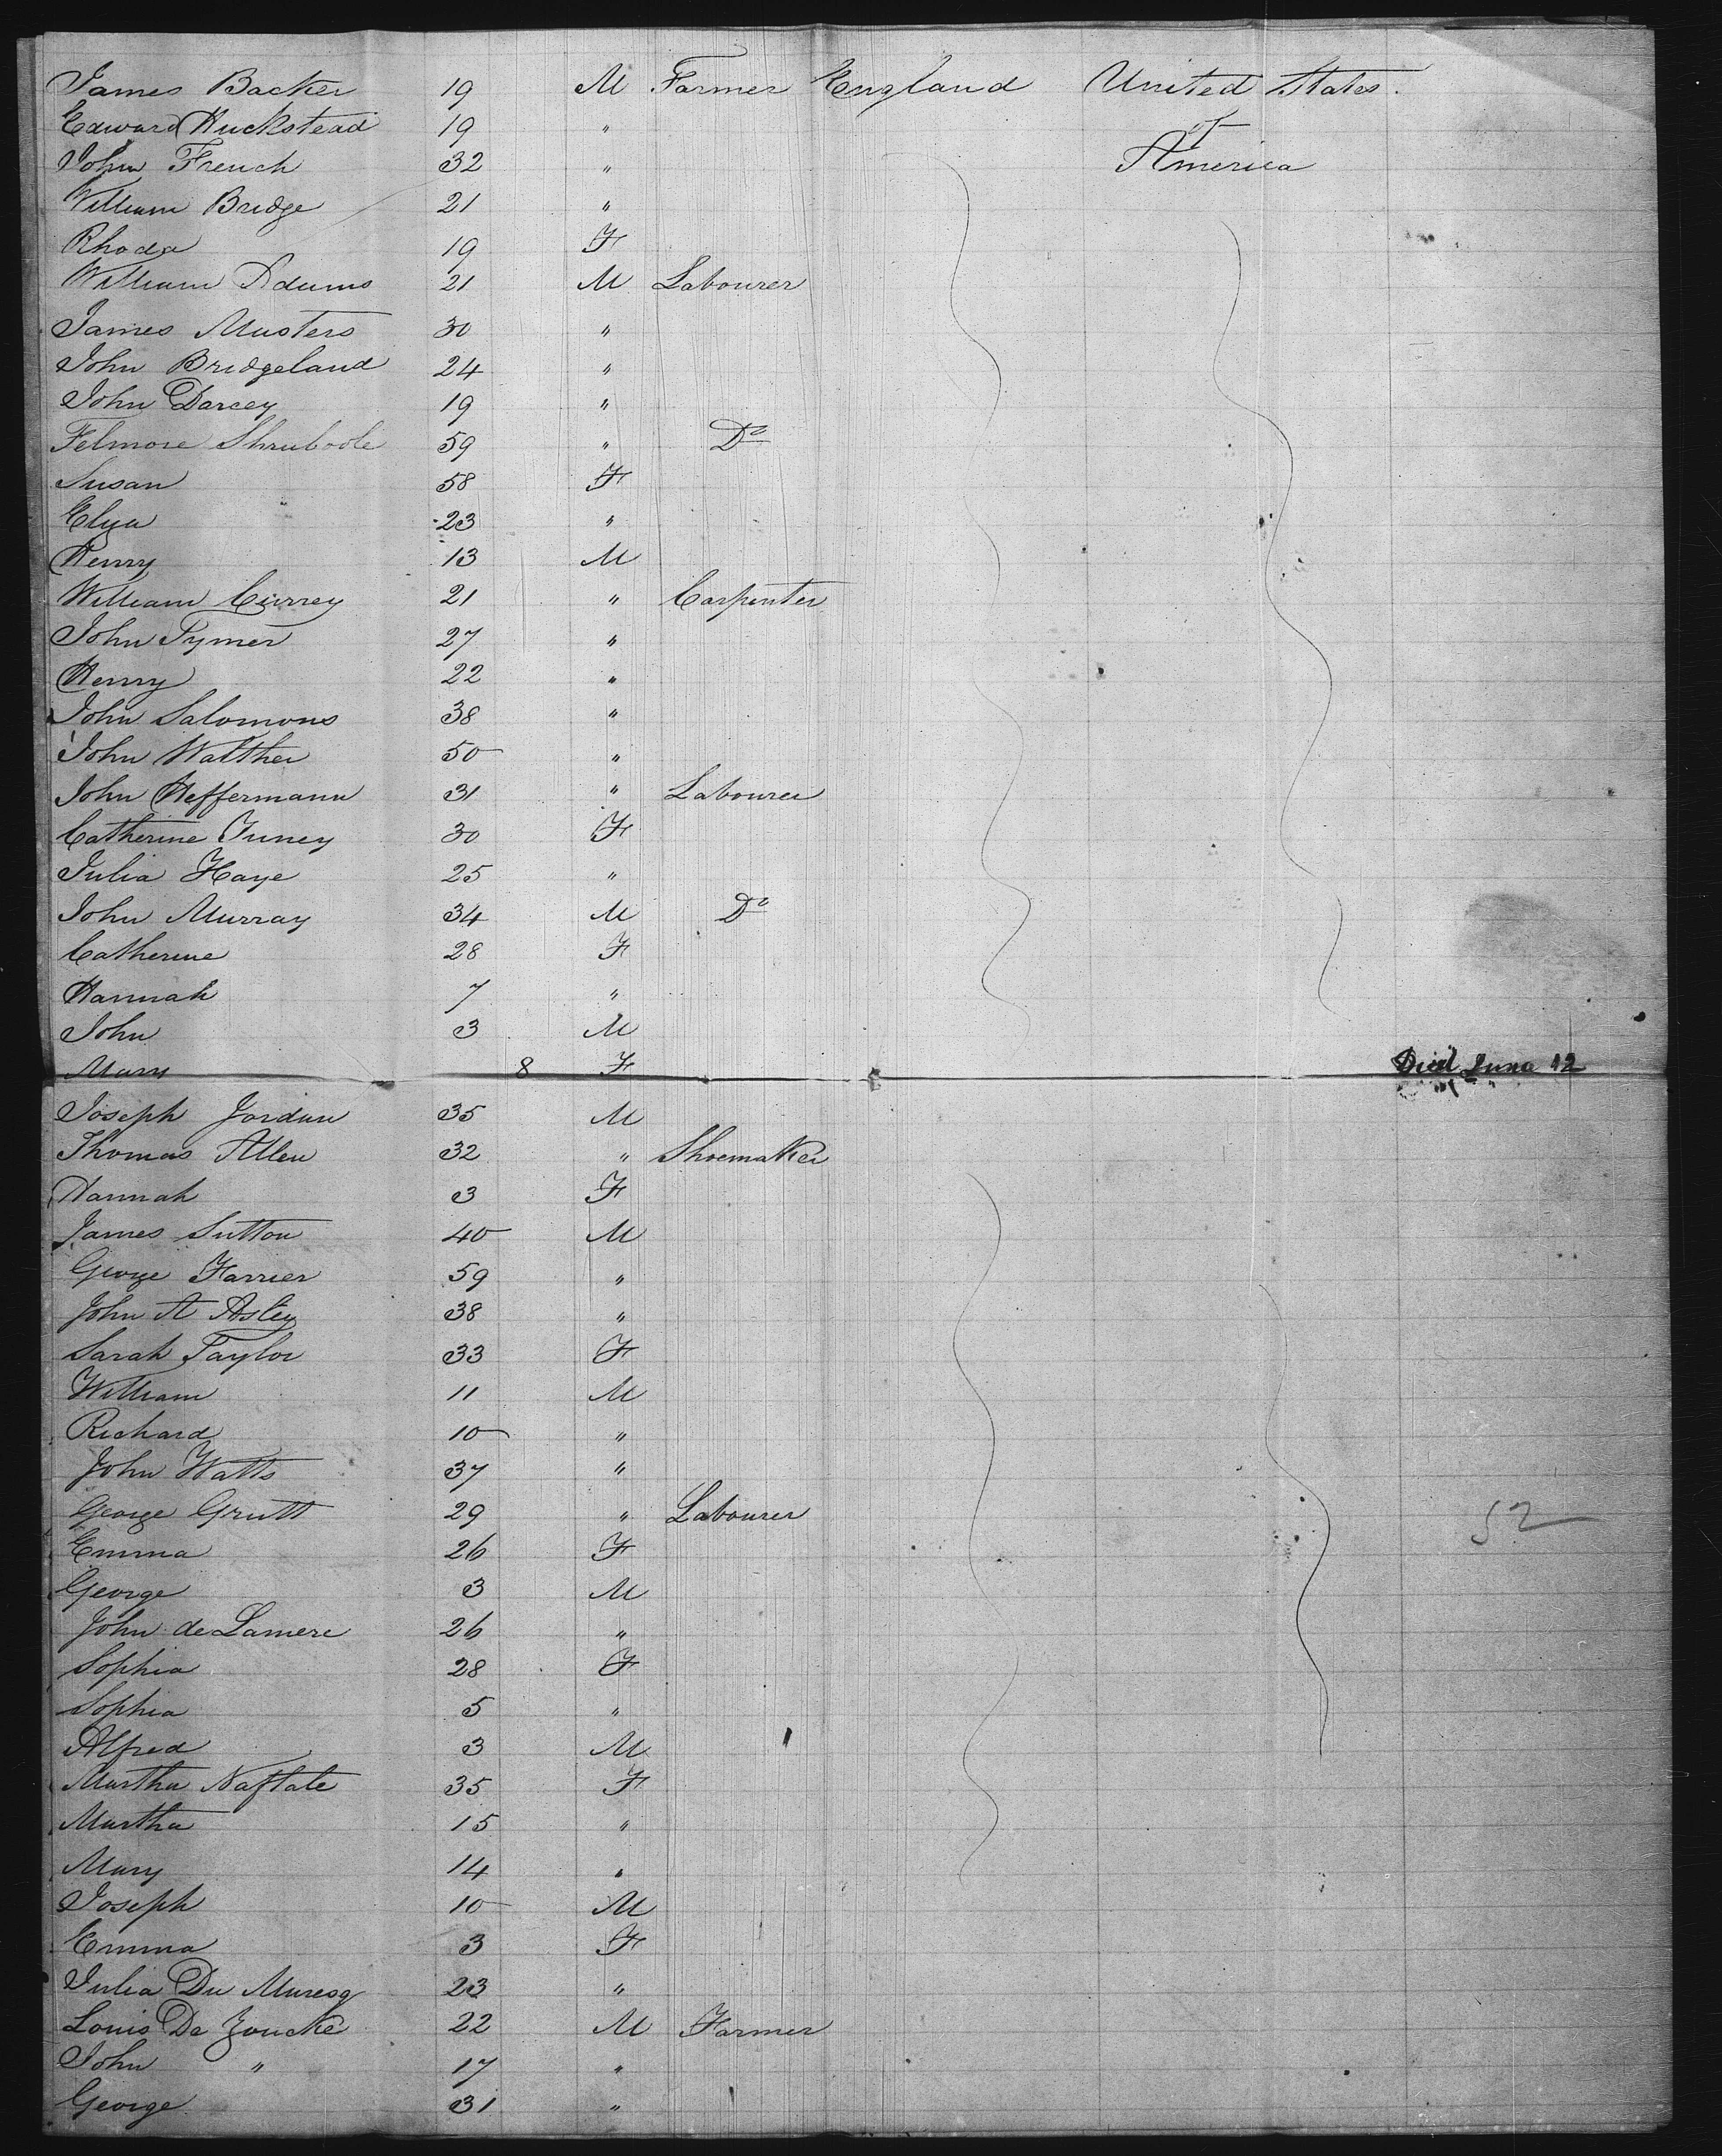 James Backer 19 M Farmer England United States.
Edward Huckstead 19 " of
John French 32 " America
William Bridge 21 "
Rhoda 19 F
William Adams 21 M Labourer
James Musters 30 "
John Bridgeland 24 "
John Darcey 19 "
Felmore Shruboole 59 " Do
Susan 58 F
Elya 23 "
Henry 13 M
William Currey 21 " Carpenter
John Tymer 27 "
Henry 22 "
John Salomons 38 "
John Walther 50 "
John Heffermann 31 " Labourer
Catherine Juney 30 F
Julia Haye 25 "
John Murray 34 M Do
Catherine 28 F
Hannah 7 "
John 3 M
Mary 8 F Died June 12
Joseph Jordan 35 M
Thomas Allen 32 " Shoemaker
Hannah 3 F
James Sutton 40 M
George Farrier 59 "
John A Astey 38 "
Sarah Taylor 33 F
William 11 M
Richard 10 "
John Watts 37 "
George Grutt 29 " Labourer 52
Emma 26 F
George 3 M
John de Lamere 26 "
Sophia 28 F
Sophia 5 "
Alfred 3 M
Martha Naftate 35 F
Martha 15 "
Mary 14 "
Joseph 10 M
Emma 3 F
Julia Du Muresq 23 "
Louis De Joucke 22 M Farmer
John " 17 "
George 31 "